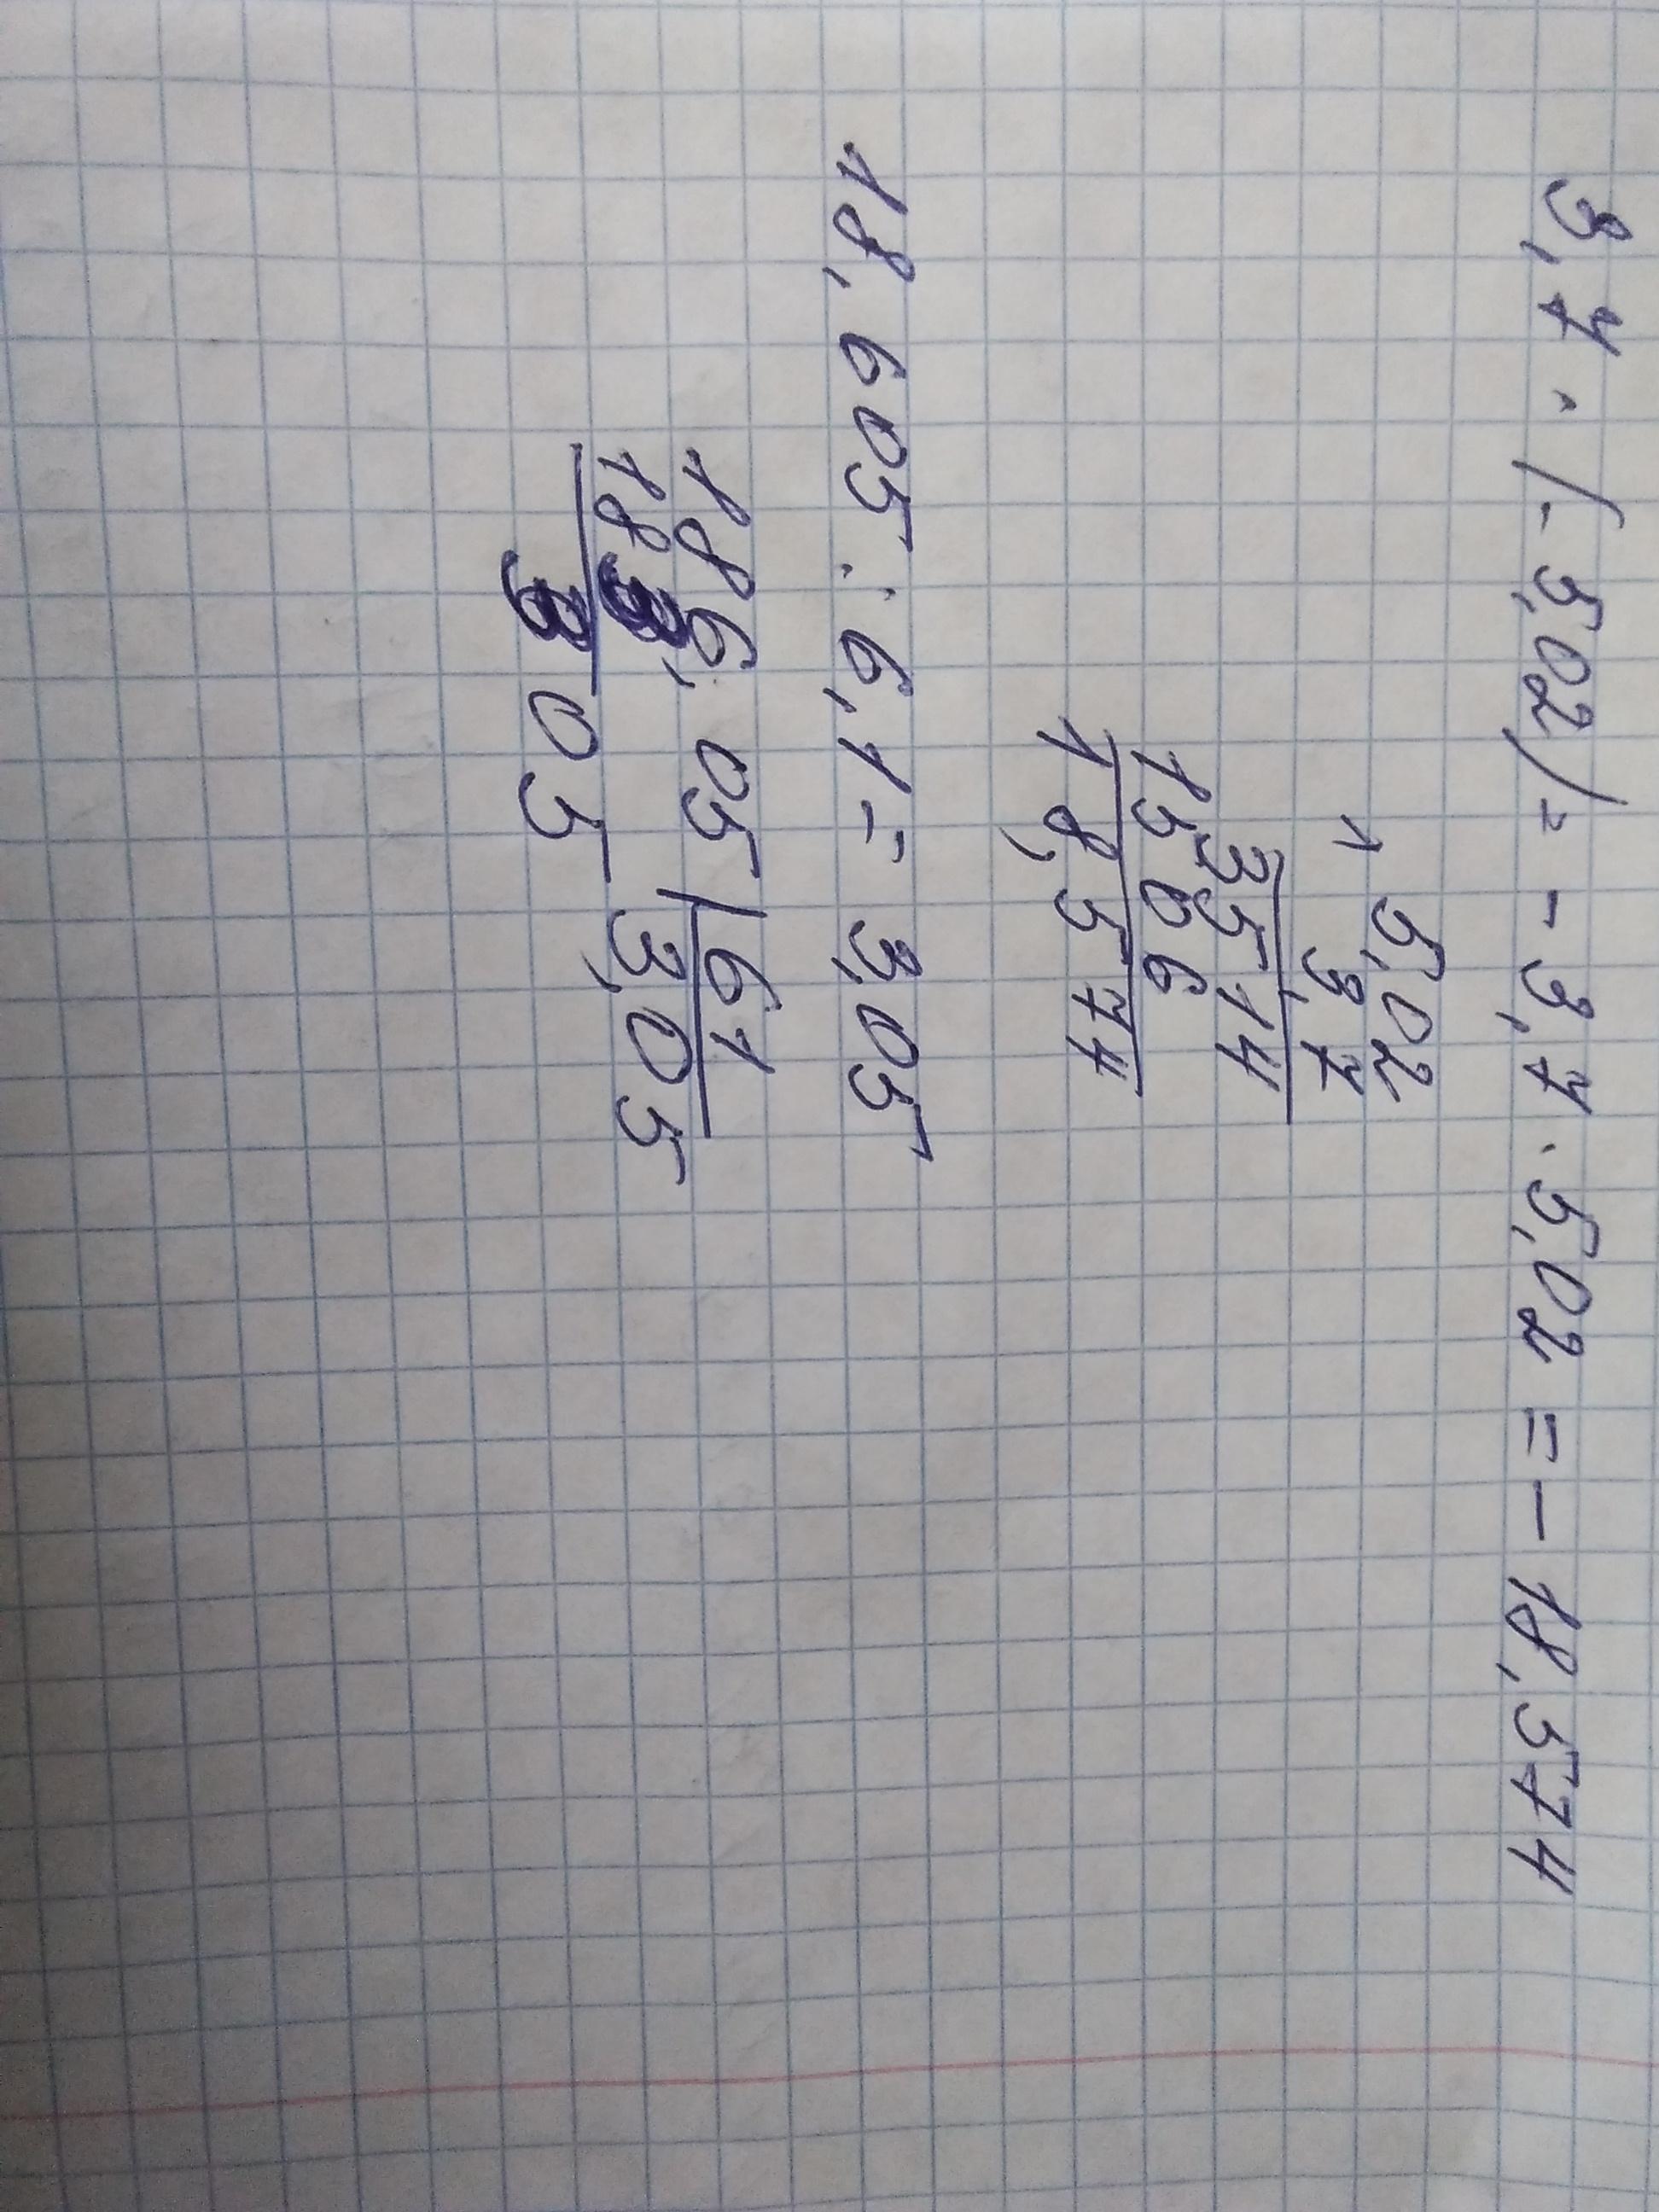 3,7 · (-5,02) = -3,7 · 5,02 = -18,574
5,02
1 3,7
35,14
1506
18,574
18,605 : 6,1 = 3,05
186,05 | 61
18 3,05
05